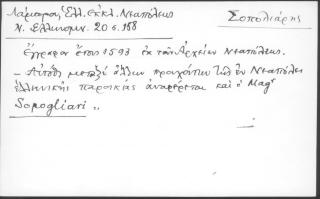 Λάμπρου, Ἑλλ. Ἐκκλ. Νεαπόλεως
Ν. Ἑλληνομν. 20 σ. 188
Σοπολιάρης
Ἔγγραφον ἔτους 1593 ἐκ τῶν Ἀρχείων Νεαπόλεως.
– Αὐτόθι μεταξὺ ἄλλων προκρίτων τῆς ἐν Νεαπόλει
ἑλληνικῆς παροικίας ἀναφέρεται καὶ ὁ Magr
Sopogliari „